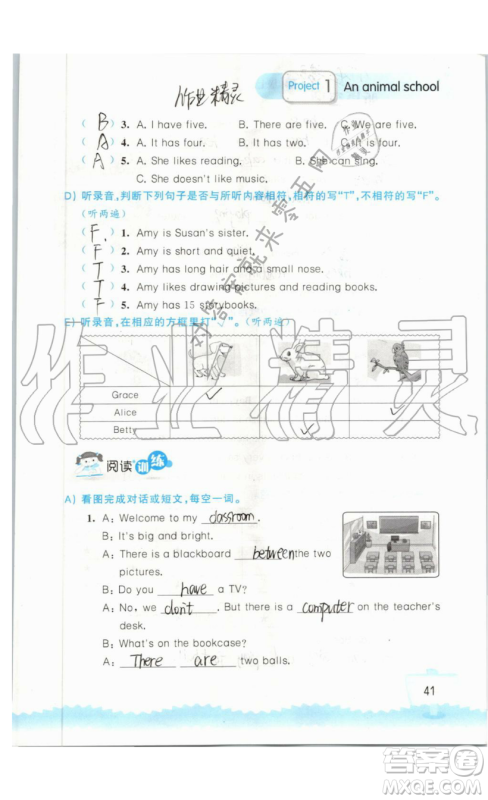 Project 1 An animal school
作业精灵
( B ) 3. A. I have five. B. There are five. C. We are five.
( A ) 4. A. It has four. B. It has two. C. It is four.
( A ) 5. A. She likes reading. B. She can sing.
C. She doesn't like music.
D) 听录音,判断下列句子是否与所听内容相符,相符的写"T",不相符的写"F"。
(听两遍)
( F ) 1. Amy is Susan's sister.
( F ) 2. Amy is short and quiet.
( T ) 3. Amy has long hair and a small nose.
( T ) 4. Amy likes drawing pictures and reading books.
( F ) 5. Amy has 15 storybooks.
E) 听录音,在相应的方框里打"✓"。(听两遍)
Grace
Alice
Betty
阅读训练
A) 看图完成对话或短文,每空一词。
1. A: Welcome to my classroom.
B: It's big and bright.
A: There is a blackboard between the two
pictures.
B: Do you have a TV?
A: No, we don't. But there is a computer on the teacher's
desk.
B: What's on the bookcase?
A: There are two balls.
41
好答案就来零五网
作业精灵
答案圈
MXQE.COM